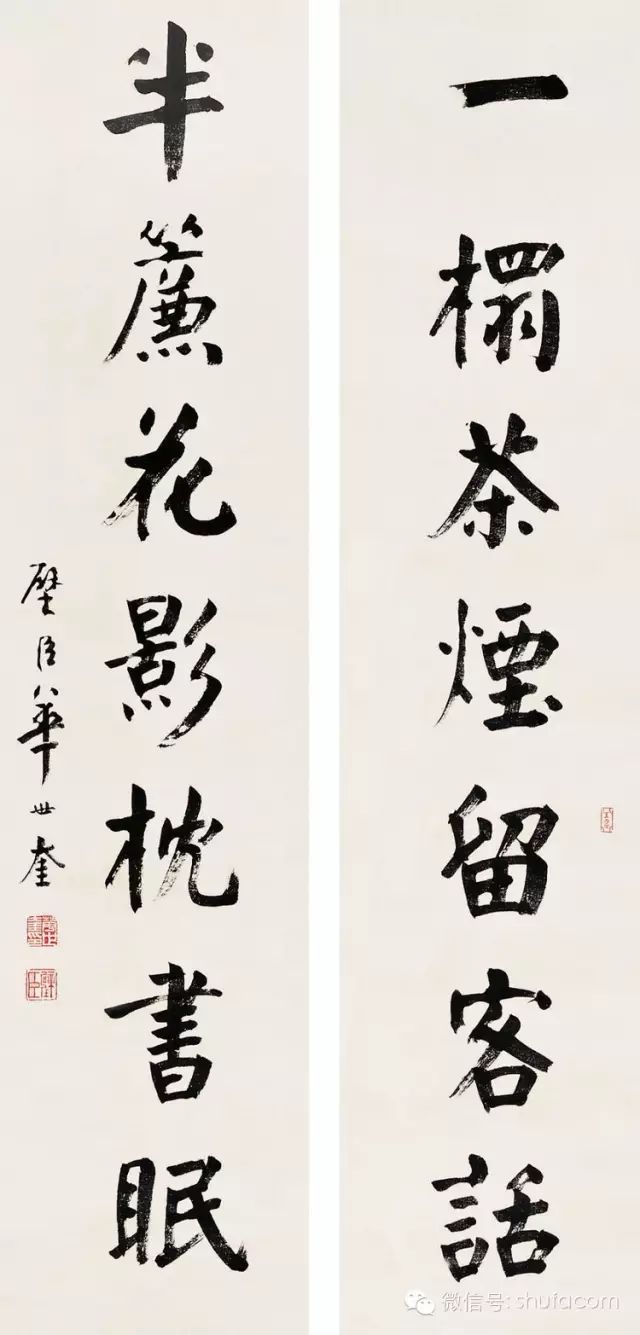 一榻茶煙留客話
半簾花影枕書眠
壁臣華世奎
微信号: shufacom